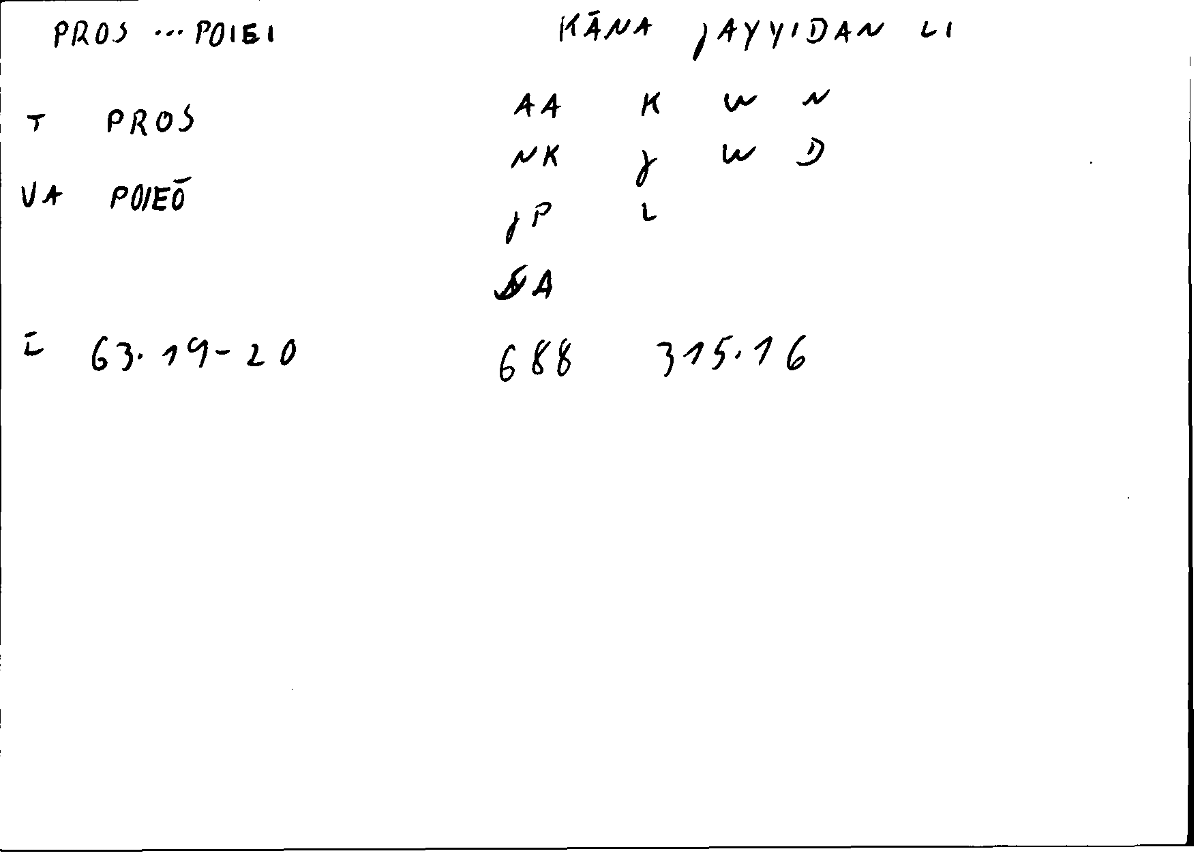 PROS ... POIEI KĀNA jAYYIDAN LI
AA K W N
T PROS
NK j W D
VA POIEŌ
jP L
A
I 63.19-20 688 315.16